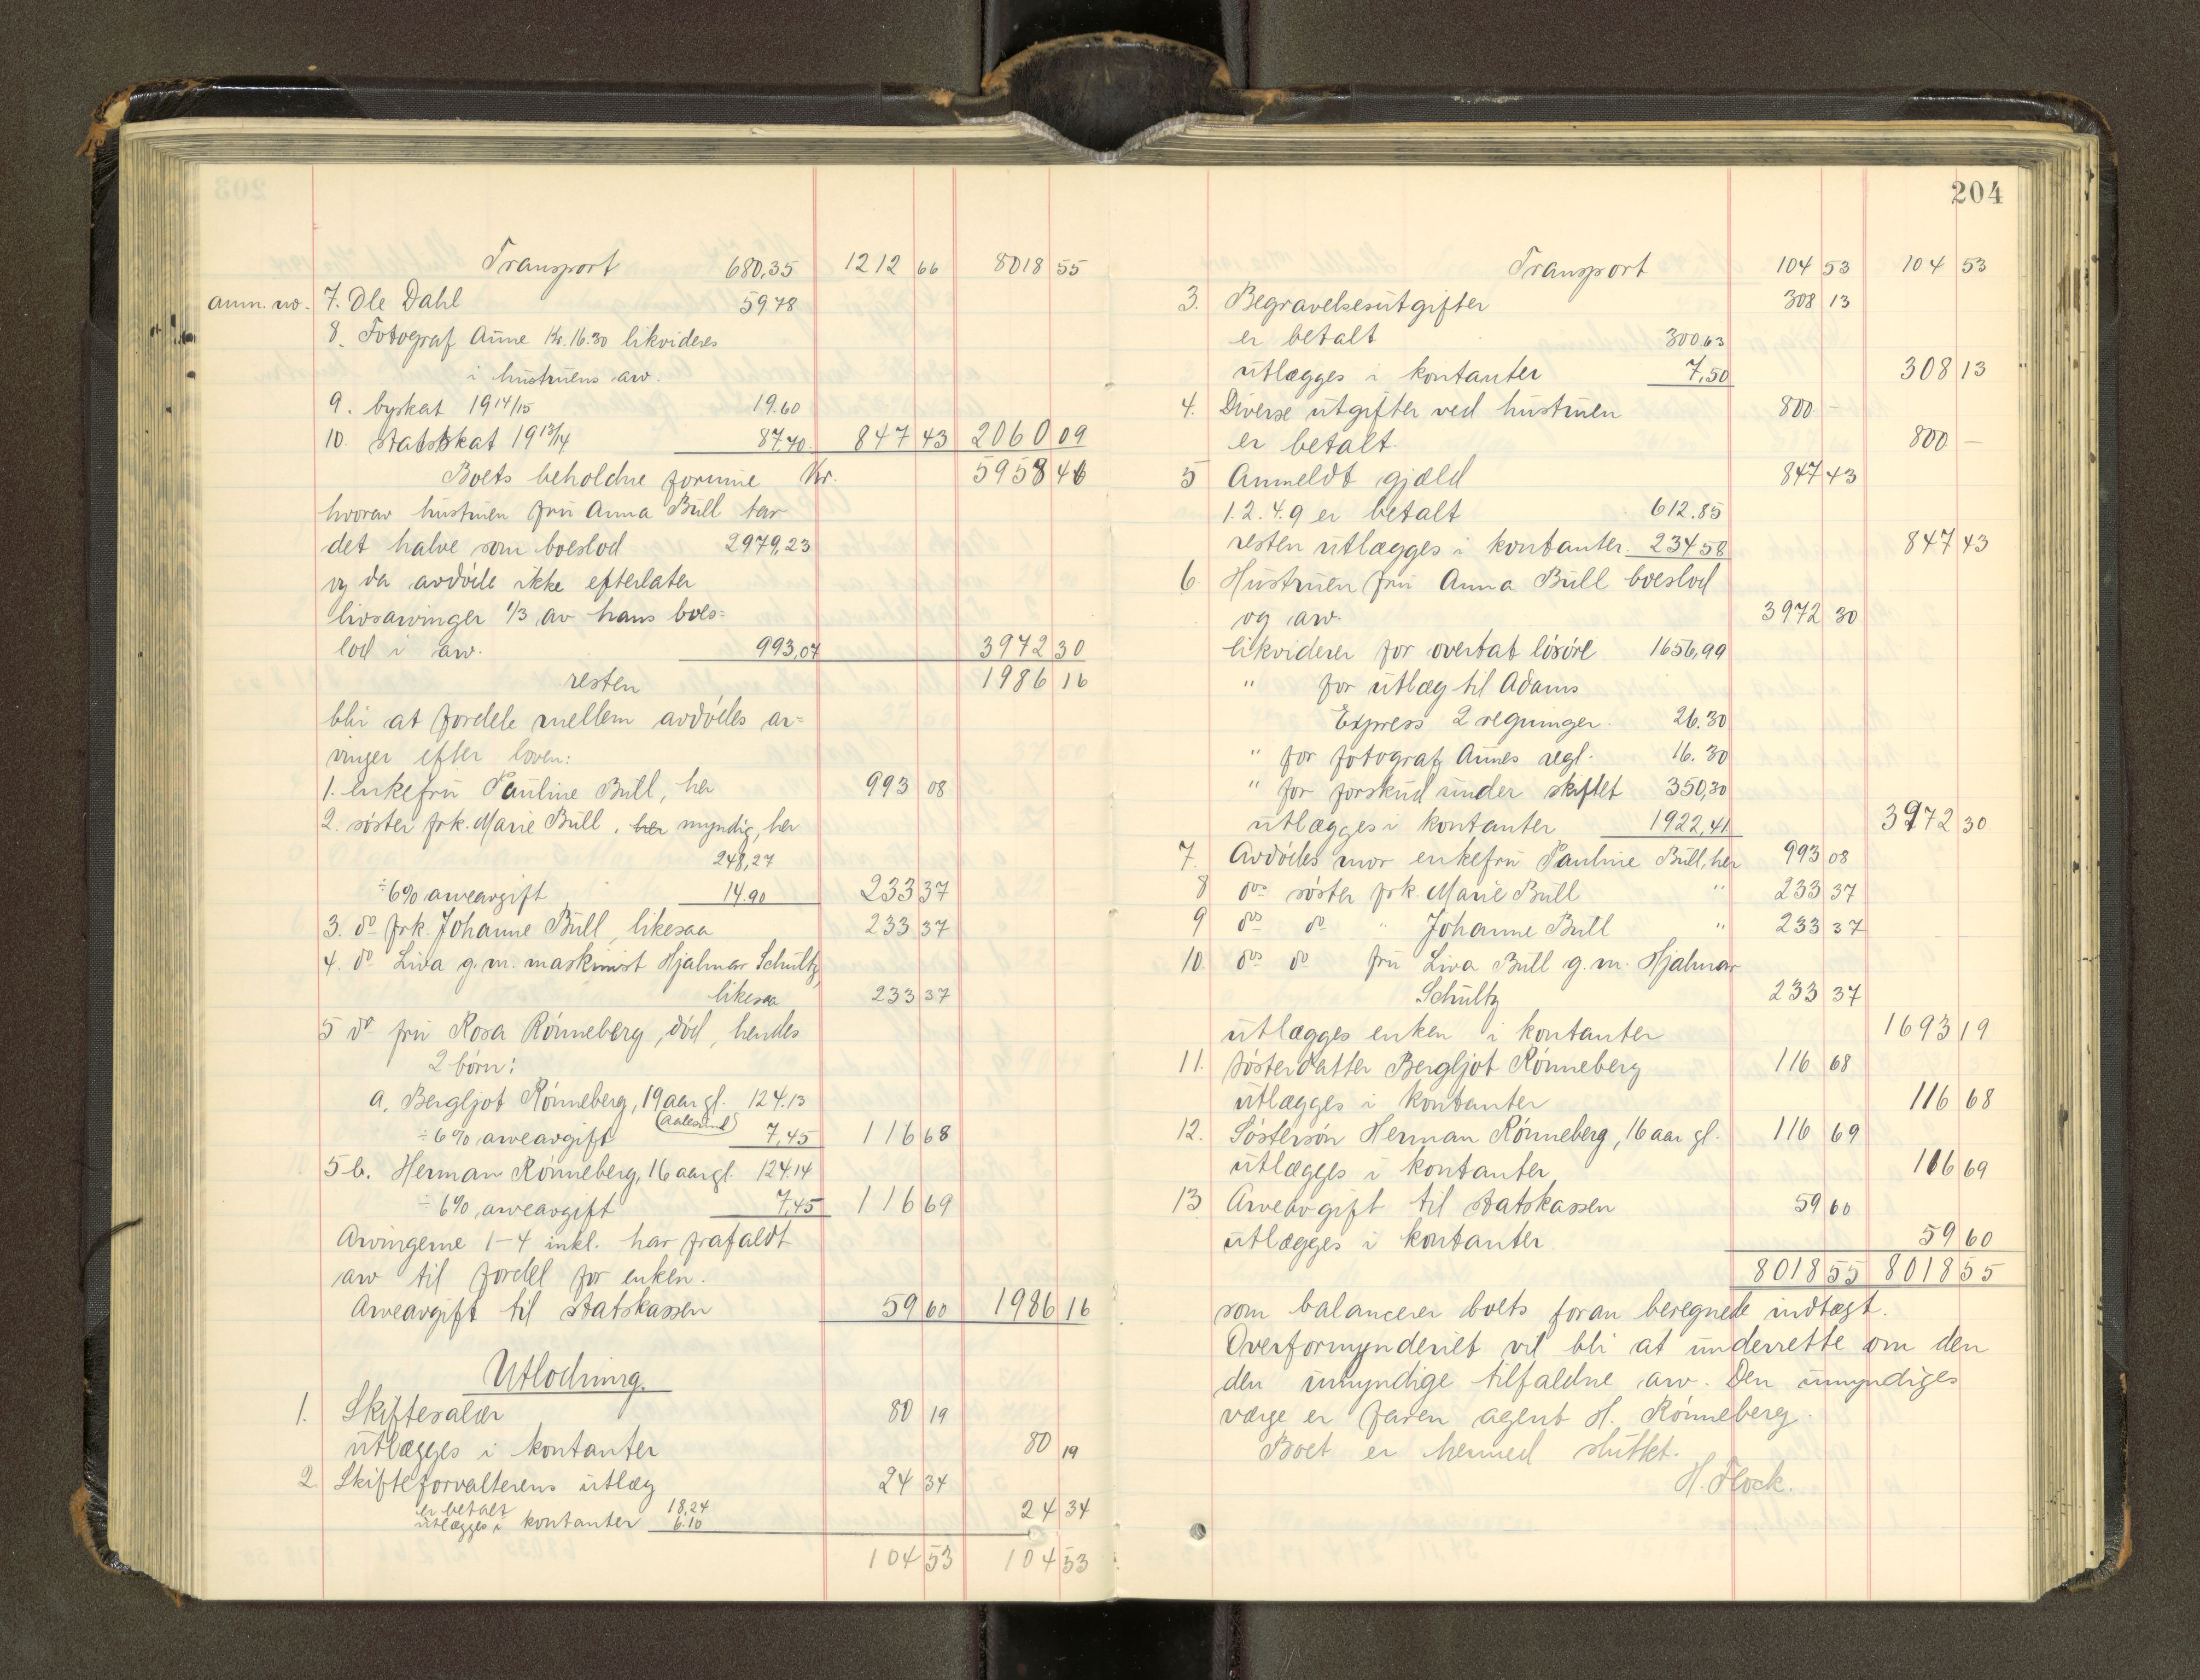 Transport 680,35 1212 66 8018 55
anm. no. 7. Ole Dahl 59 78
8. Fotograf Aune Kr. 16.30 likvideres
i hustruens arv.
9. byskat 1914/15 19.60
10. statsskat 1913/14 87,70 847 43 2060 09
Boets beholdne formue Kr. 5958 46
hvorav hustruen fru Anna Bull tar
det halve som boeslod 2979,23
og da avdöde ikke efterlater
livsarvinger 1/3 av hans boes=
lod i arv. 993,07 3972 30
resten 1986 16
bli at fordele mellem avdödes ar=
vinger efter loven:
1. enkefru Pauline Bull, her 993 08
2. söster frk. Marie Bull, her myndig, her
248,27
÷ 6% arveavgift 14.90 233 37
3. do frk. Johanne Bull, likesaa 233 37
4. do Liva g. m. maskinist Hjalmar Schultz,
likesaa 233 37
5 do fru Rosa Rönneberg, död, hendes
2 börn:
a. Bergljot Rönneberg, 19 aar gl. 124.13
(Aalesund)
÷ 6% arveavgift 7,45 116 68
5 b. Herman Rönneberg, 16 aar gl. 124.14
÷ 6% arveavgift 7,45 116 69
Arvingerne 1-4 inkl. har frafaldt
arv til fordel for enken.
Arveavgift til statskassen 59 60 1986 16
Utlodning.
1. Skiftesalær 80 19
utlægges i kontanter 80 19
2 Skifteforvalterens utlæg 24 34
er betalt 18,24
utlægges i kontanter 6.10 24 34
104 53 104 53
204
Transport 104 53 104 53
3. Begravelsesutgifter 308 13
er betalt 300.63
utlægges i kontanter 7,50 308 13
4. Diverse utgifter ved hustruen 800 -
er betalt. 800 -
5 Anmeldt gjæld 847 43
1. 2. 4. 9 er betalt 612.85
resten utlægges i kontanter 234 58 847 43
6. Hustruen fru Anna Bull boeslod
og arv. 3972 30
likviderer for overtat lösöre 1656,99
" for utlæg til Adams
Express 2 regninger. 26.30
" for fotograf Aunes regl. 16.30
" for forskud under skiftet 350,30
utlægges i kontanter 1922,41 3972 30
7. Avdödes mor enkefru Pauline Bull, her 993 08
8 dos söster frk. Marie Bull " 233 37
9 dos do " Johanne Bull " 233 37
10. dos do fru Liva Bull g. m. Hjalmar
Schultz 233 37
utlægges enken i kontanter 1693 19
11. Sösterdatter Bergljot Rönneberg 116 68
utlægges i kontanter 116 68
12. Söstersön Herman Rönneberg, 16 aar gl. 116 69
utlægges i kontanter 116 69
13 Arveavgift til statskassen 59 60
utlægges i kontanter 59 60
8018 55 8018 55
som balancerer boets foran beregnede indtægt.
Overformynderiet vil bli at underrette om den
den umyndige tilfaldne arv. Den umyndiges
værge er faren agent H. Rönneberg.
Boet er hermed sluttet.
H. Flock.